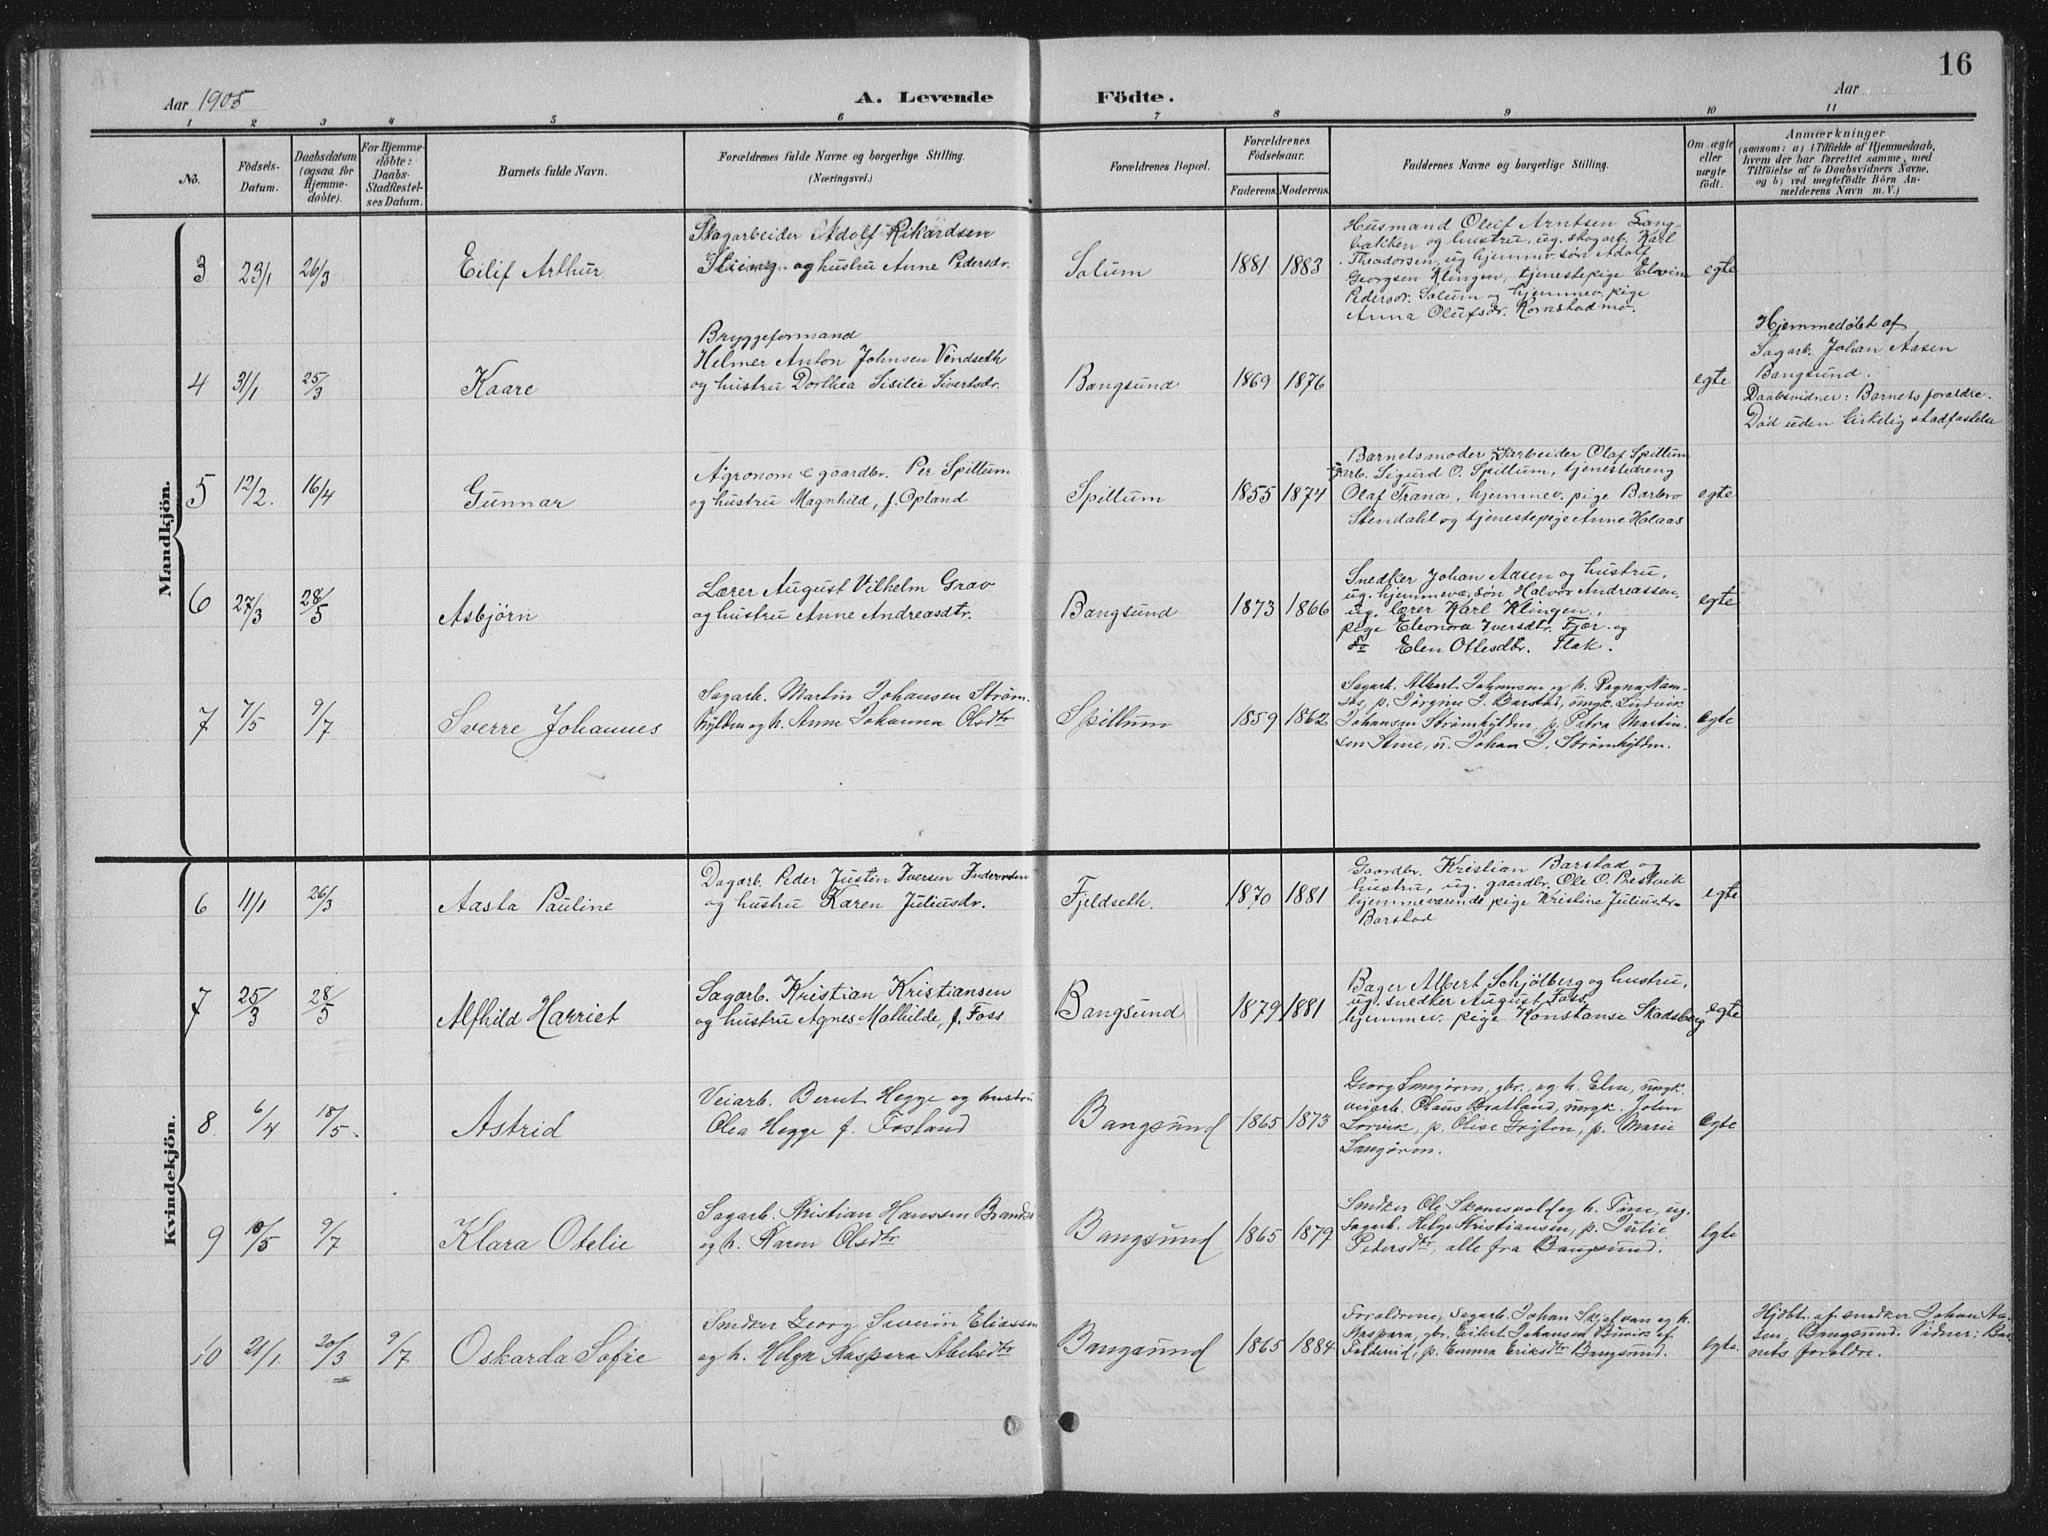 16
Aar 1905
A. Levende Födte.
Aar
1 2 3 4 5 6 7 8 9 10 11
No.
Födsels-Datum.
Daabsdatum (ogsaa for Hjemme-döbte).
For Hjemme-döbte: Daabs-Stadfœstel-ses Datum.
Barnets fulde Navn.
Forœldrenes fulde Navne og borgerlige Stilling.
(Næringsvei.)
Forœldrenes Bopœl.
Forœldrenes Födselsaar.
Faderens. Moderens.
Faddernes Navne og borgerlige Stilling.
Om œgte eller uœgte födt.
Anmœrkninger
(saasom: a) i Tilfœlde af Hjemmedaab,
hvem der har forrettet samme, med
Tilföielse af to Daabsvidners Navne.
og b) ved uœgtefödte Börn An-
melderens Navn m. V.)
Mandkjön.
3 23/1 26/3 Eilif Arthur
Skogarbeider Adolf Rikardsen
og hustru Anne Pedersdr.
Solum 1881 1883
Husmand Oluf Arntsen Lang-
bakken og hustru, ug. skogarb. Karl
Theodorsen, ug hjemmev. søn Adolf
Georgsen Klingen, tjenestepige Elvine
Pedersdr. Solum og hjemmev. pige
Anna Olufsdr. Komstadmo.
egte
4 31/1 25/3 Kaare
Bryggeformand
Helmer Anton Johnsen Vendseth
og hustru Dorthea Sisilie Sivertsdr.
Bangsund 1869 1876
egte
Hjemmedøbt af
Sagarb. Johan Aasen
Bangsund.
Daabsvidner: Barnets forældre.
Død uden kirkelig stadfæstelse
5 12/2. 16/4 Gunnar
Agronom & gaardbr. Per Spillum
og hustru Magnhild, f. Opland
Spillum 1855 1874
Barnets moder, arbeider Olaf Spillum
arb. Sigurd O. Spillum, tjenestedreng
Olaf Trana, hjemmev. pige Barbro
Stendahl og tjenestepige Anne Holaas
egte
6 27/3 28/5 Asbjörn
Lærer August Vilhelm Grav
og hustru Anne Andreasdtr.
Bangsund 1873 1866
Snedker Johan Aasen og hustru,
ug. hjemmevæ. søn Halvor Andreassen,
ug. lærer Karl Klingen,
pige Eleonora Iversdtr. Fjær og
Elen Ottesdtr. Flak.
egte
7 7/5 9/7 Sverre Johannes
Sagarb. Martin Johansen Strøm-
hylden og h. Anne Johanna Olsdtr
Spillum 1859 1862
Sagarb. Albert Johannsen og h. Ragna Nam-
sos, p. Jørgine J. Barstad, ungk. Ludvik
Johansen Strømhylden, p. Petra Martin-
sen Stene, u. Johan J. Strømhylden.
egte
Kvindekjön.
6 11/1 26/3 Aasta Pauline
Dagarb. Peder Justin Iversen
og hustru Karen Juliusdr.
Fjeldseth. 1870 1881
Gaardbr. Kristian Barstad og
hustru, ug. gaardbr. Ole O. Prestvik
hjemmeværende pige Kristine Juliusdr.
Barstad
egte
7 25/3 28/5 Alfhild Harriet
Sagarb. Kristian Kristiansen
og hustru Agnes Mathilde, f. Foss
Bangsund 1879 1881
Bager Albert Schjølberg og hustru,
ug. snedker August Foss,
hjemmev. pige Konstanse Skadsberg
egte
8 6/4 18/5. Astrid
Veiarb. Bernt Hegge og hustru
Olea Hegge f. Fosland
Bangsund 1865 1873
Georg Langørgn, gbr., og h. Elise, ungk.
veiarb. Olaus Bratland, ungk. John
Lorvik, p. Olise, p. Marie
Langørgn.
egte
9 10/5 9/7 Klara Otelie
Sagarb. Kristian Hanssen
og h. Karen Olsdtr
Bangsund 1865 1879
Snedker Ole og h. Tine, ug.
sagarb. Helge Kristiansen, p. Julie
Petersdtr, alle fra Bangsund.
egte
10 21/1 20/3 9/7 Oskarda Sofie
Snedker Georg Severin Eliassen
og h. Helga Kaspara Abelsdtr
Bangsund 1865 1884
Forældrene, sagarb. Johan Skjelvan og h.
Kaspara, gbr. Eilert Johansen af
p. Emma Eriksdtr Bangsund.
egte.
Hjdbt. af snedker Johan Aa-
sen, Bangsund. Vidner: Bar-
nets forældre.